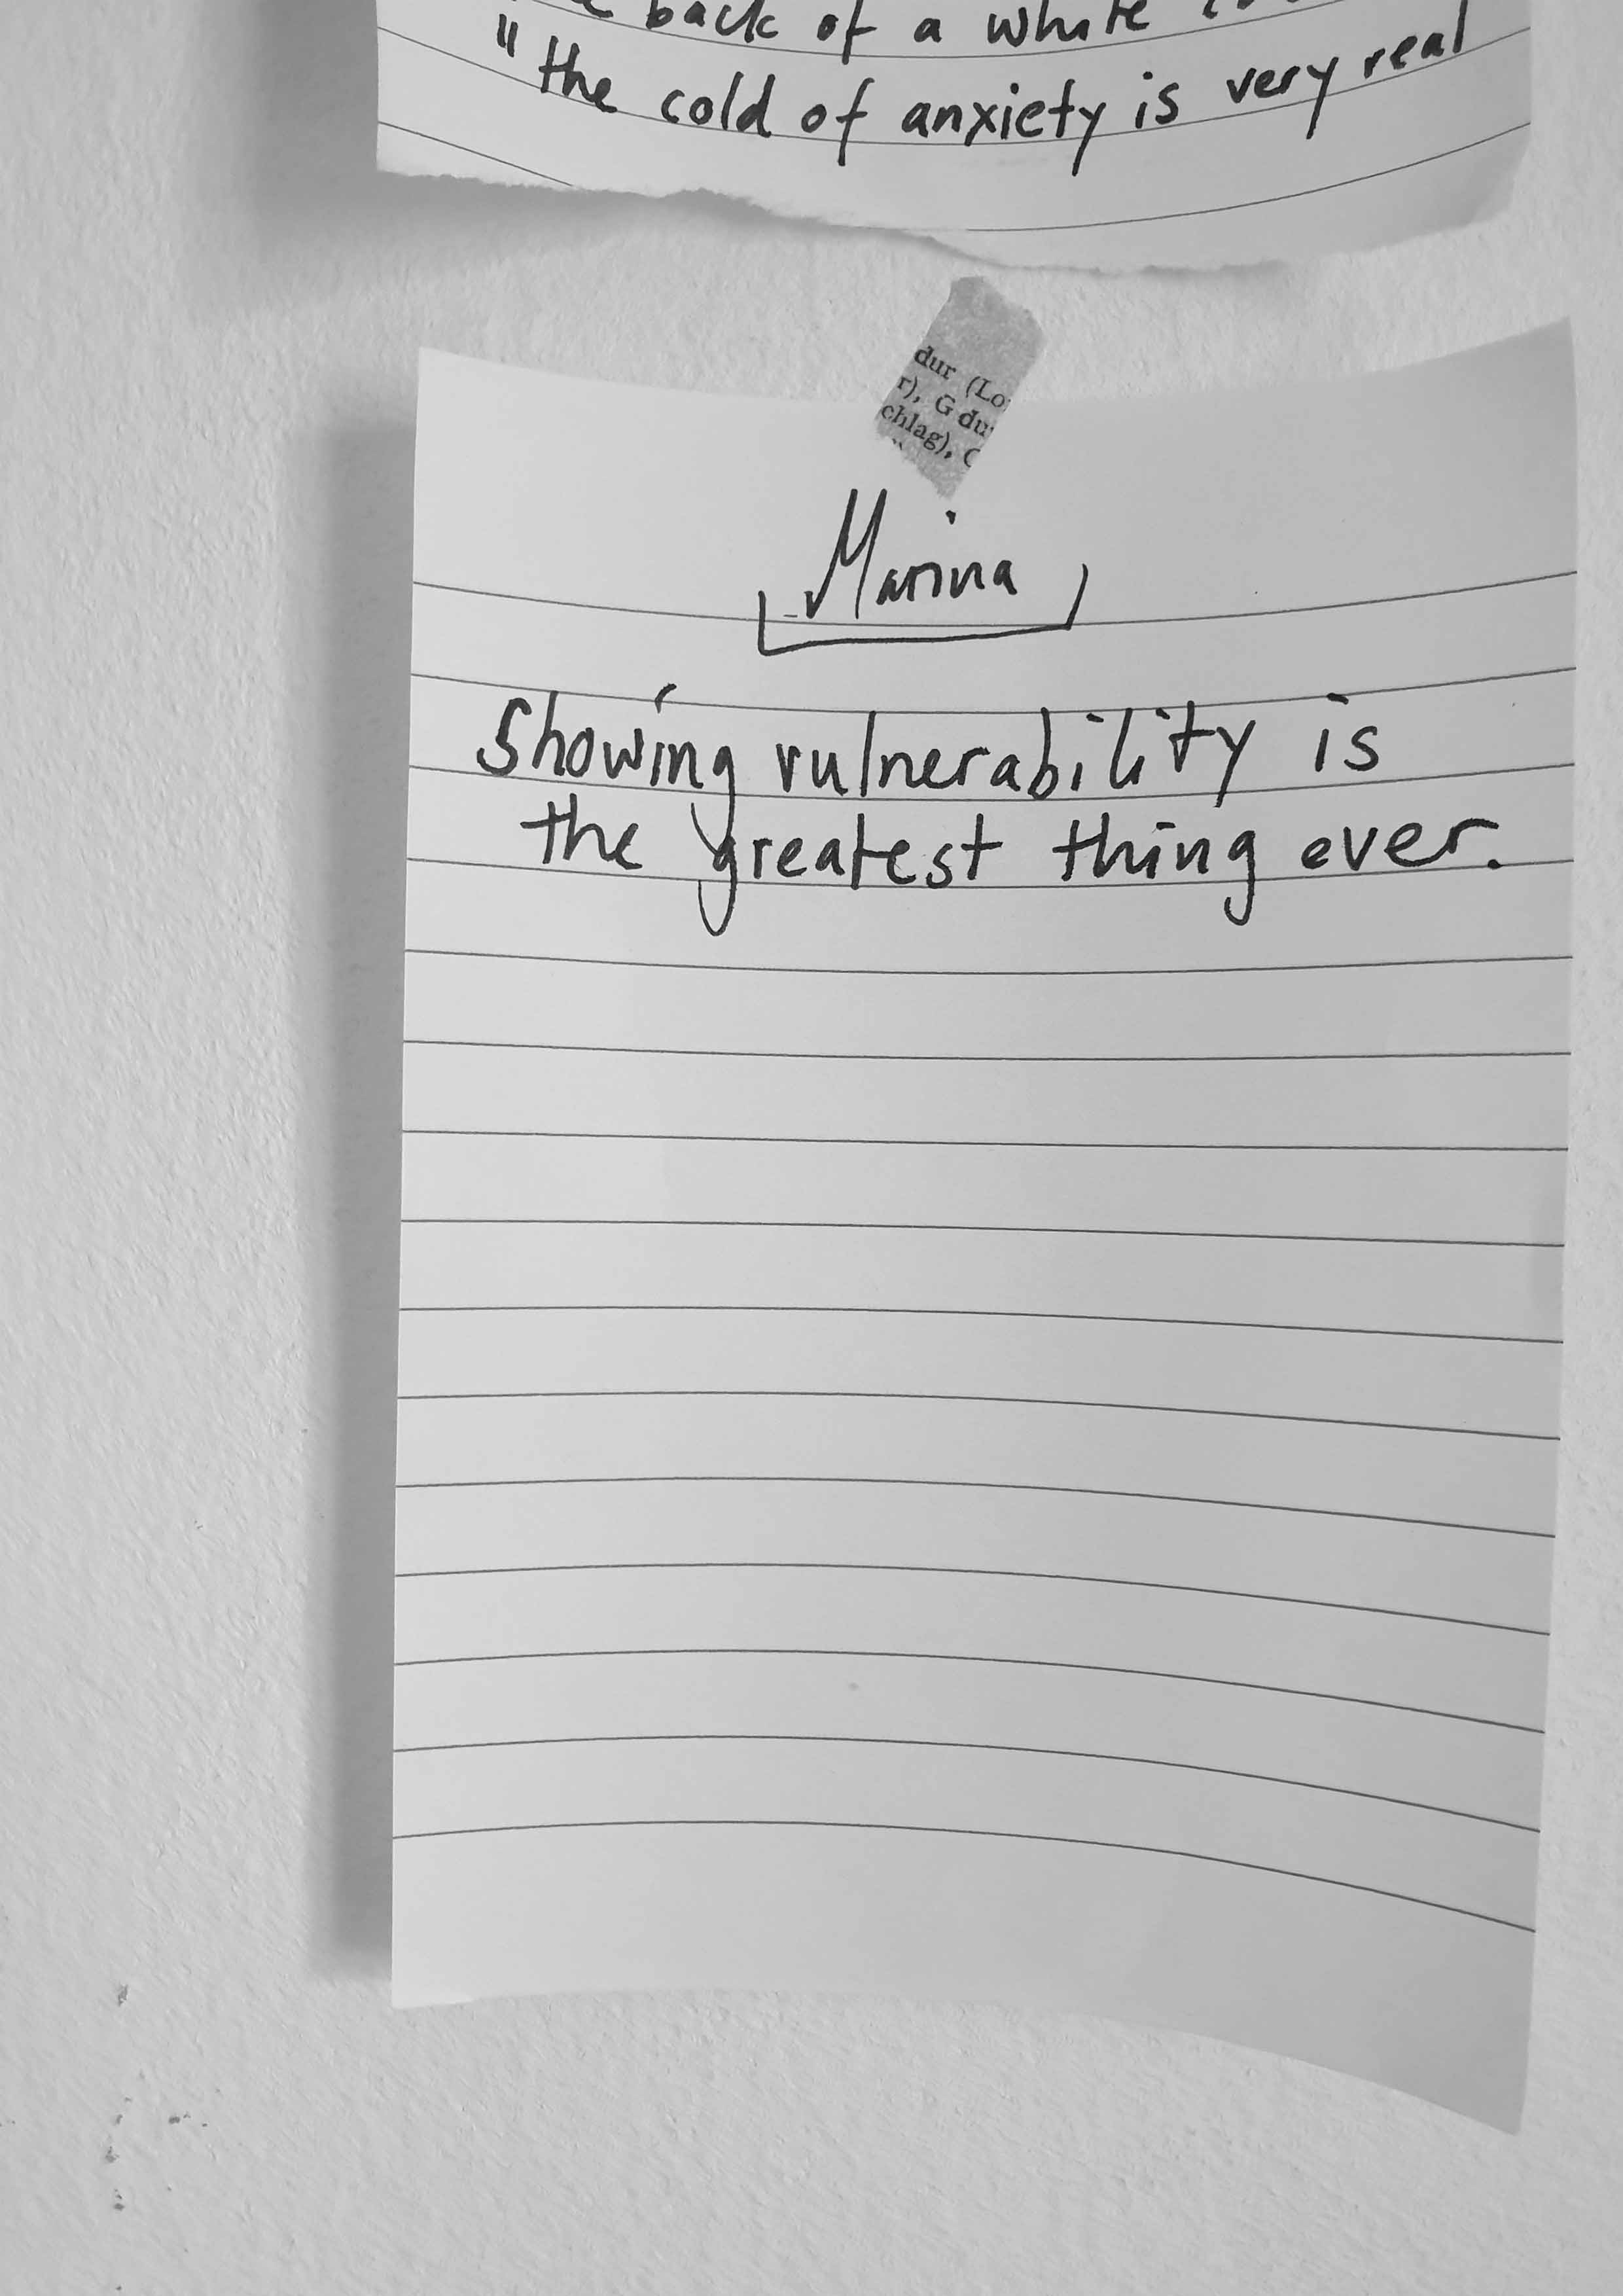 back of a white
"the cold of anxiety is very real
dur (Lo
r), G du
chlag),
Marina
Showing vulnerability is
the greatest thing ever.